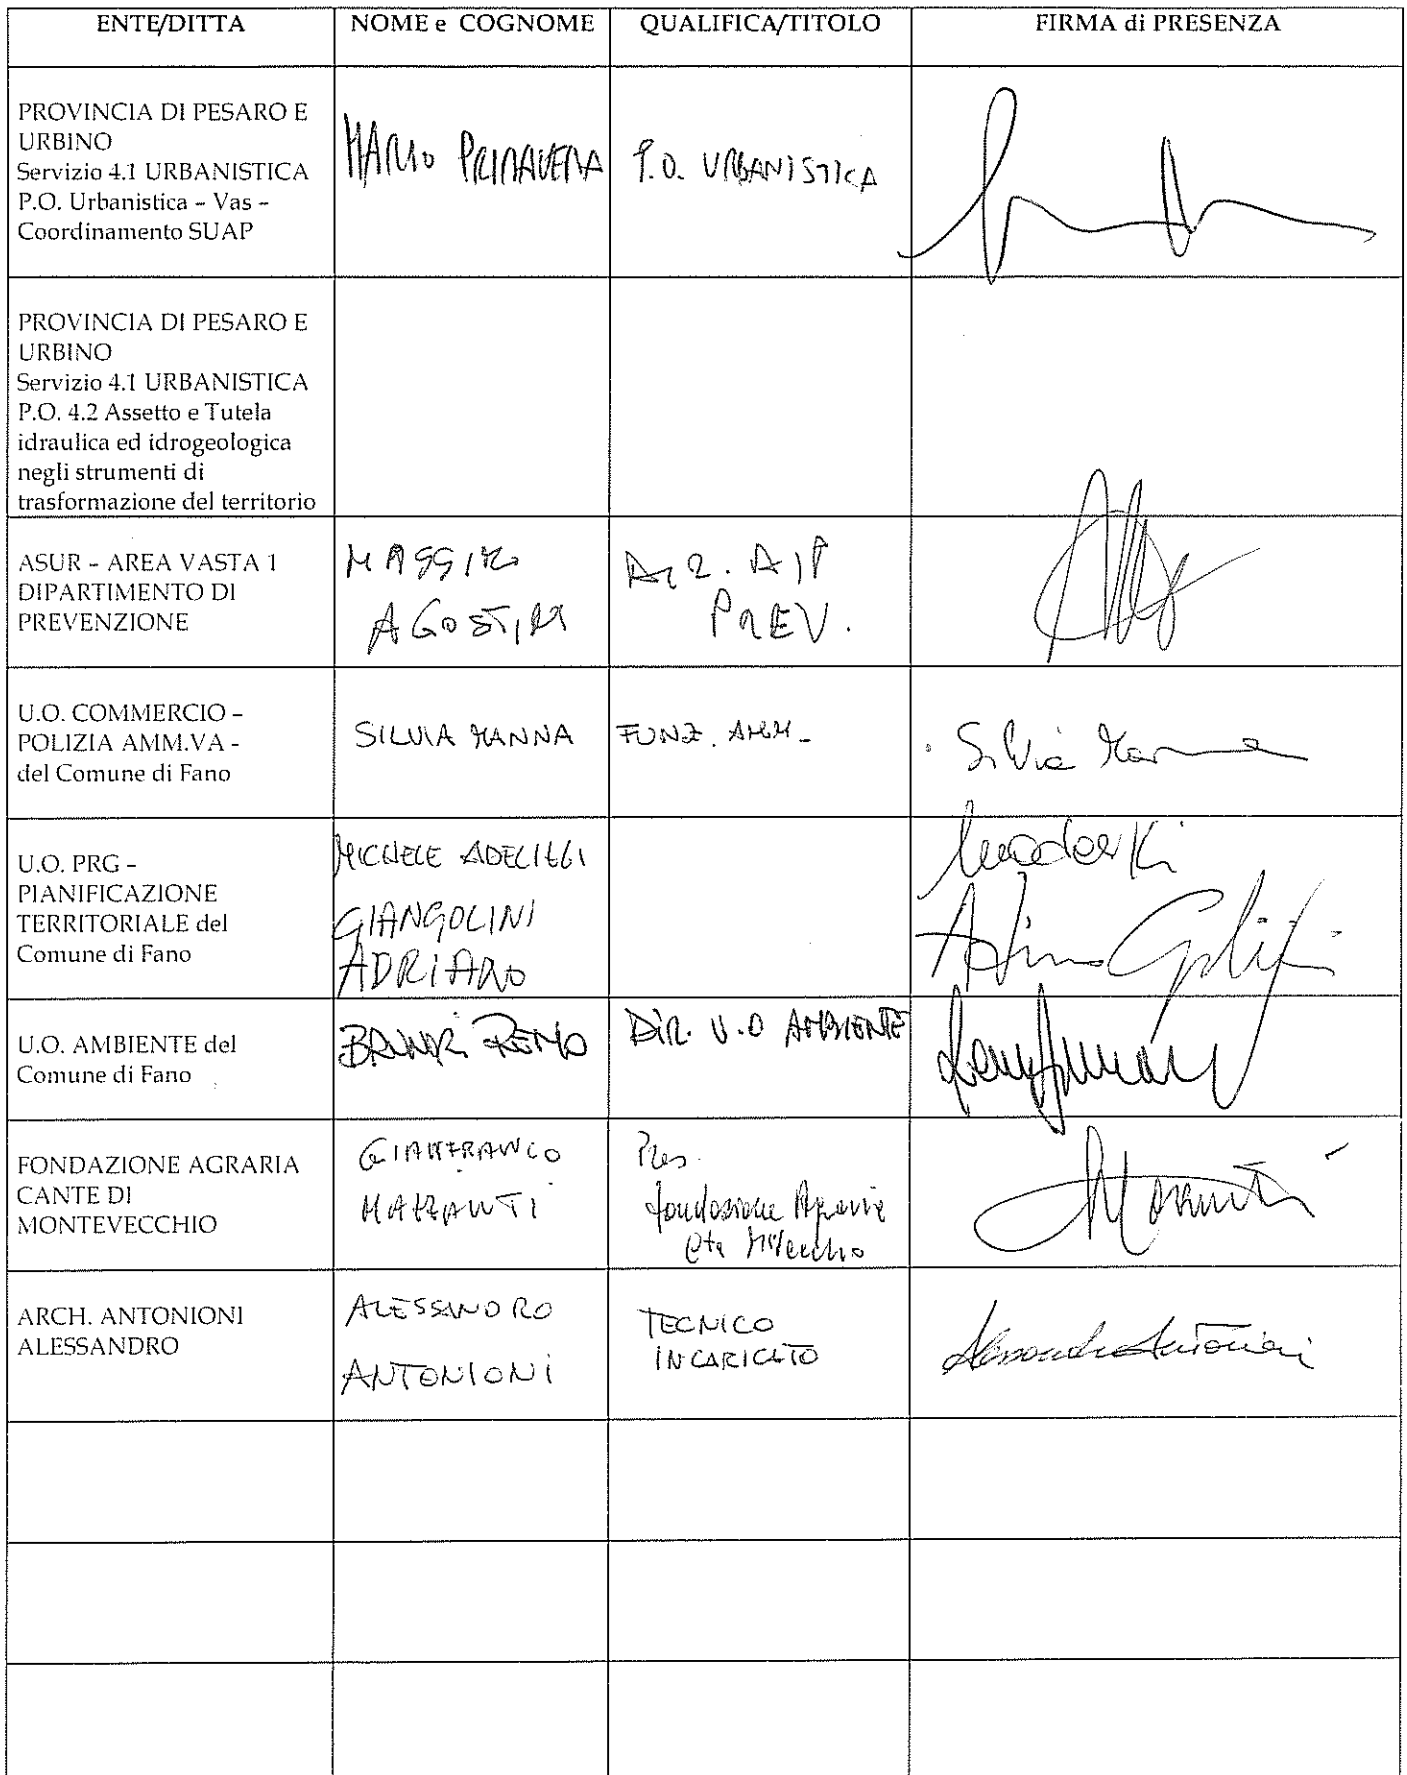 ENTE/DITTA NOME e COGNOME QUALIFICA/TITOLO FIRMA di PRESENZA
PROVINCIA DI PESARO E
URBINO
Servizio 4.1 URBANISTICA
P.O. Urbanistica – Vas –
Coordinamento SUAP
MARIO PRIMAVERA
P.O. URBANISTICA
PROVINCIA DI PESARO E
URBINO
Servizio 4.1 URBANISTICA
P.O. 4.2 Assetto e Tutela
idraulica ed idrogeologica
negli strumenti di
trasformazione del territorio
ASUR – AREA VASTA 1
DIPARTIMENTO DI
PREVENZIONE
MASSIMO
AGOSTINI
PREV.
U.O. COMMERCIO –
POLIZIA AMM.VA -
del Comune di Fano
SILVIA MANNA
FUNZ. AMM.
Silvia Manna
U.O. PRG –
PIANIFICAZIONE
TERRITORIALE del
Comune di Fano
MICHELE ADELIZZI
GIANGOLINI
ADRIANO
U.O. AMBIENTE del
Comune di Fano
REMO
DIR. U.O AMBIENTE
FONDAZIONE AGRARIA
CANTE DI
MONTEVECCHIO
GIANFRANCO
MAZZANTI
Pres.
fondazione Agraria
ARCH. ANTONIONI
ALESSANDRO
ALESSANDRO
ANTONIONI
TECNICO
INCARICATO
Alessandro Antonioni